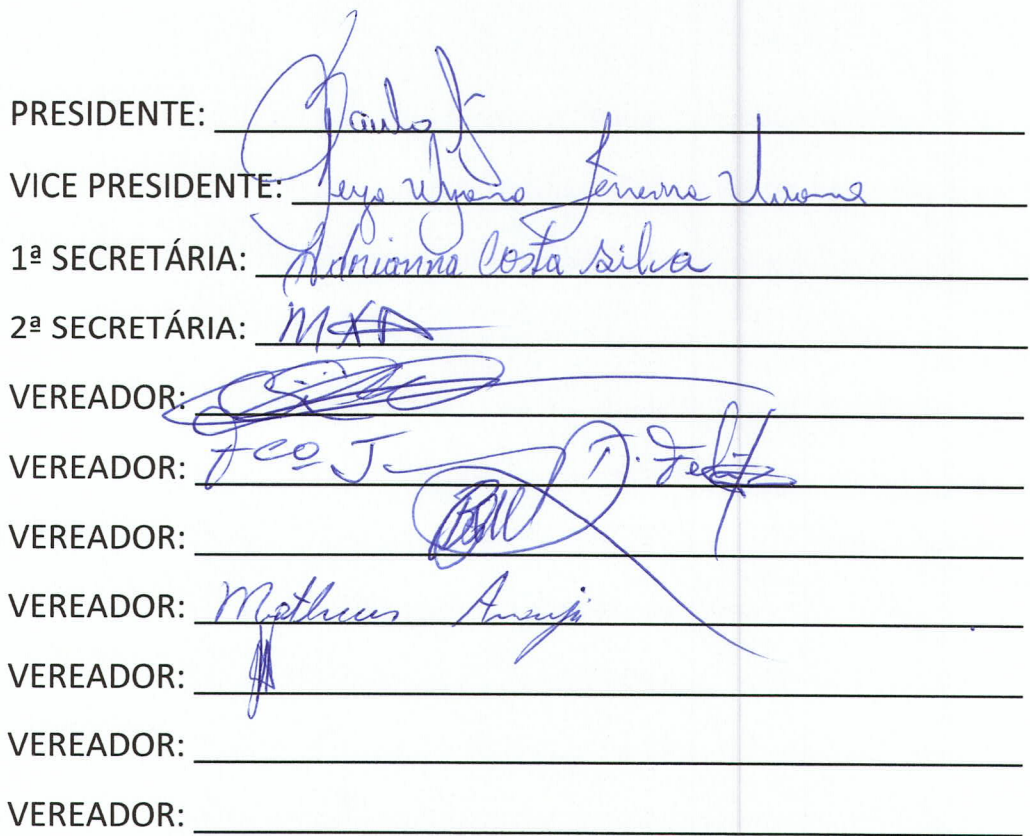 PRESIDENTE: Paulo
VICE PRESIDENTE:
1ª SECRETÁRIA: Adrianna Costa Silva
2ª SECRETÁRIA:
VEREADOR:
VEREADOR: Fco J T.
VEREADOR:
VEREADOR: Matheus Araujo
VEREADOR:
VEREADOR:
VEREADOR: